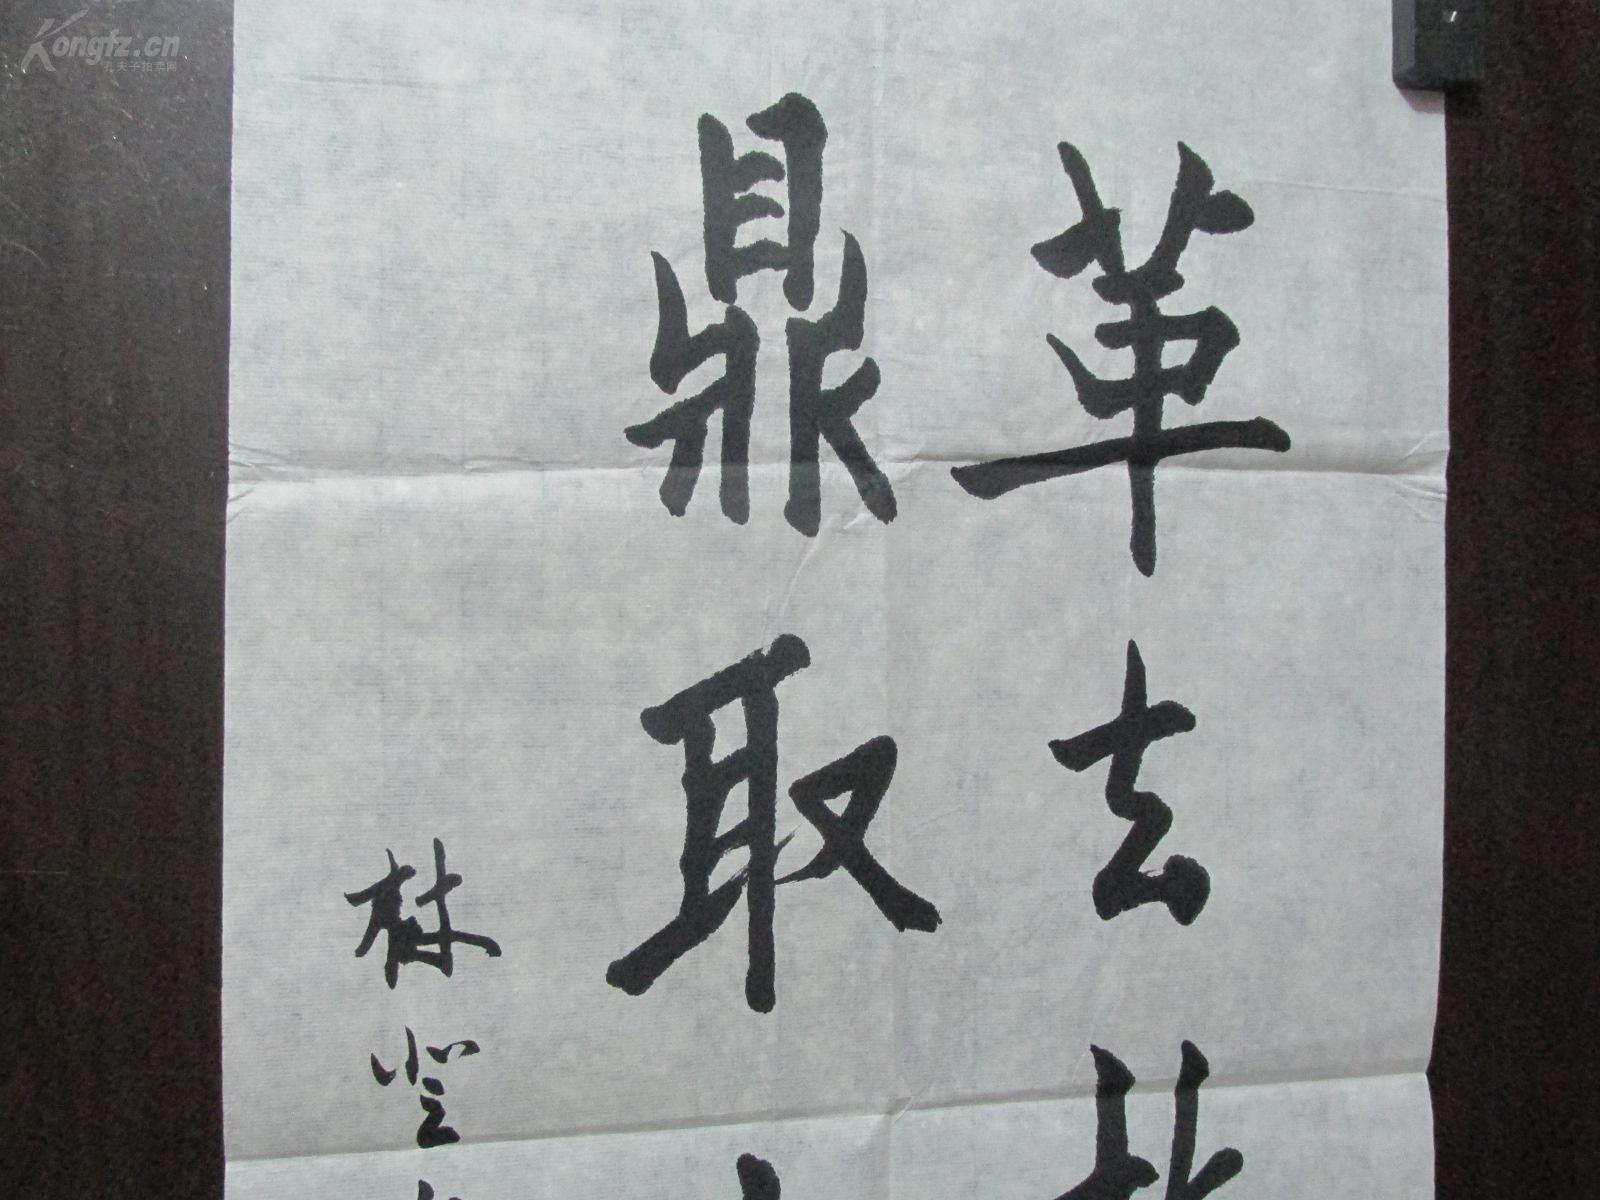 革去
鼎取
林登
Kongfz.cn
孔夫子拍卖网